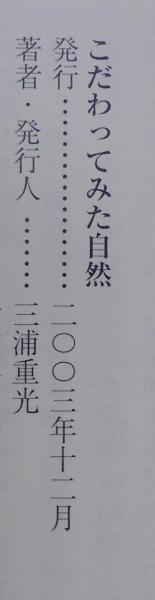 こだわってみた自然
発行………………二〇〇三年十二月
著者・発行人………三浦重光